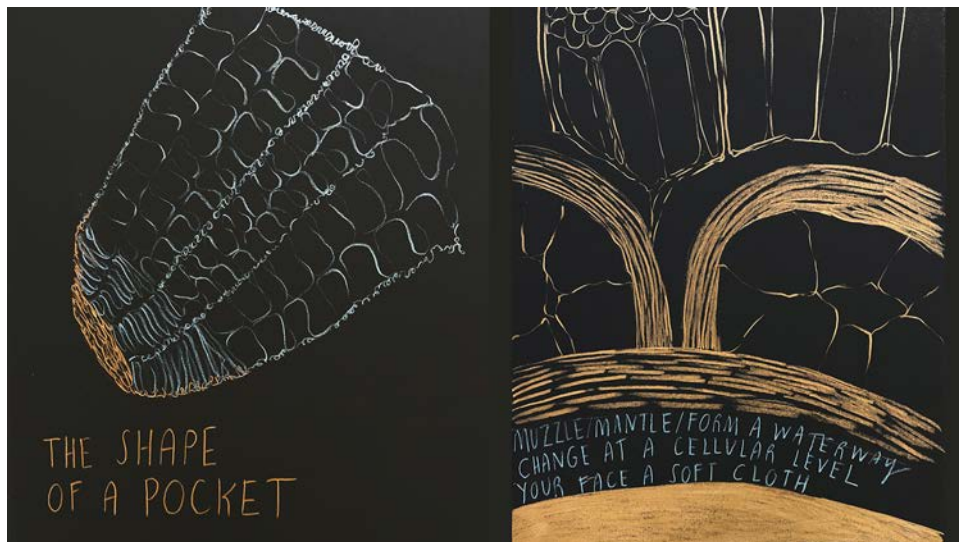 THE SHAPE
OF A POCKET
MUZZLE/MANTLE/FORM A WATERWAY
CHANGE AT A CELLULAR LEVEL
YOUR FACE A SOFT CLOTH